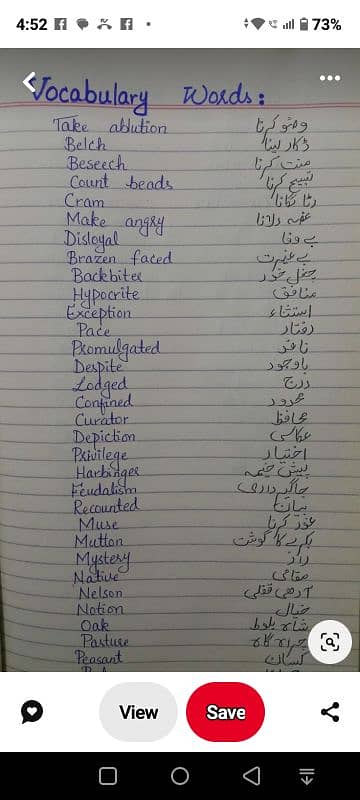 4:52 73%
Vocabulary Words:
Take ablution وضو کرنا
Belch ڈکار لینا
Beseech منت کرنا
Count beads تسبیح کرنا
Cram رٹا لگانا
Make angry غصہ دلانا
Disloyal بے وفا
Brazen faced بے غیرت
Backbiter چغل خور
Hypocrite منافق
Exception استثناء
Pace رفتار
Promulgated نافذ
Despite باوجود
Lodged درج
Confined محدود
Curator محافظ
Depiction عکاسی
Privilege اختیار
Harbinger پیش خیمہ
Feudalism جاگیرداری
Recounted
Muse غور کرنا
Mutton بکرے کا گوشت
Mystery راز
Native مقامی
Nelson آدھی قفلی
Notion خیال
Oak شاہ بلوط
Pasture چراہ گاہ
Peasant کسان
View Save